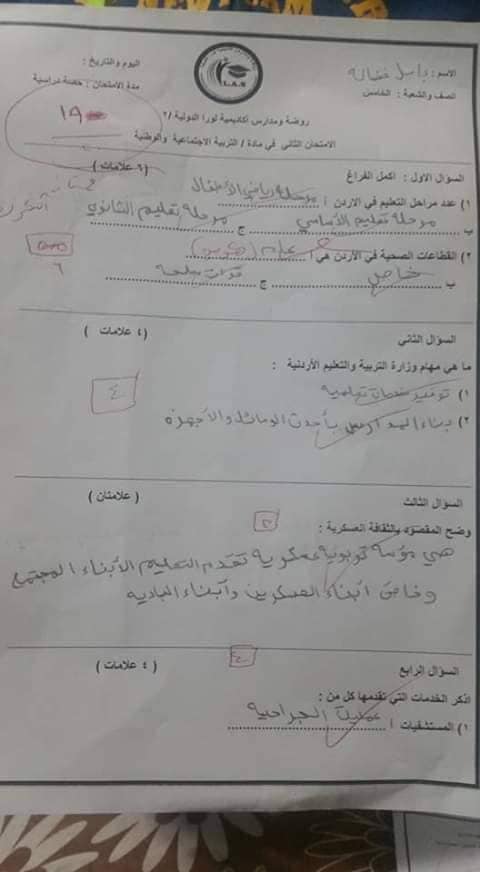 L.A.S
الاسم: باسل فضاله
اليوم والتاريخ :
الصف والشعبة : الخامس
مدة الامتحان : حصة دراسية
١٨
روضة ومدارس اكاديمية لورا الدولية /٢
الامتحان الثاني في مادة / التربية الاجتماعية والوطنية
السؤال الاول : أكمل الفراغ
(٦ علامات)
١) عدد مراحل التعليم في الاردن أ مرحلة رياض الأطفال
ب مرحلة تعليم الأساسي ج مرحلة تعليم الثانوي
٢) القطاعات الصحية في الأردن هي أ عام (حكومي)
ب خاص ج
٦
السؤال الثاني
(٤ علامات )
ما هي مهام وزارة التربية والتعليم الأردنية :
١) توفير خدمات تعليمية
٤
٢) بأحدث الوسائل والأجهزة
السؤال الثالث
(علامتان )
وضح المقصود بالثقافة العسكرية :
٢
هي مؤسسة تربوية عسكرية تقدم التعليم لأبناء المجتمع
وخاصة أبناء العسكرين وأبناء البادية
السؤال الرابع
(٤ علامات )
٤
اذكر الخدمات التي تقدمها كل من :
١) المستشفيات أ عمليات الجراحية